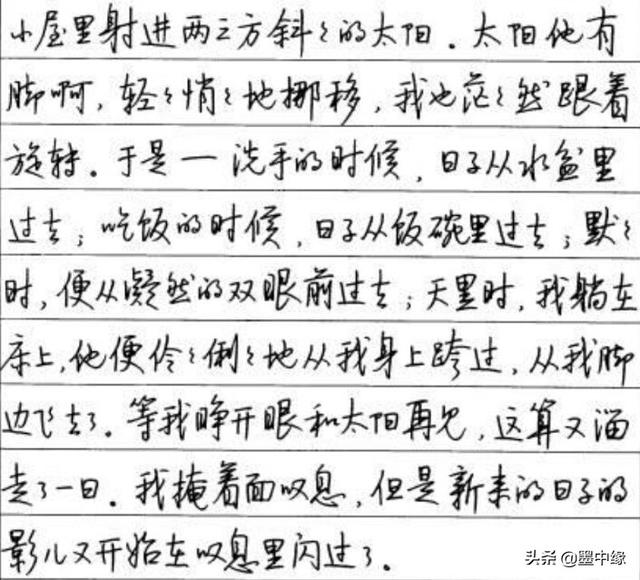 小屋里射进两三方斜々的太阳。太阳他有
脚啊，轻々悄々地挪移，我也茫々然跟着
旋转。于是一洗手的时候，日子从水盆里
过去；吃饭的时候，日子从饭碗里过去；默々
时，便从凝然的双眼前过去；天黑时，我躺在
床上，他便伶々俐々地从我身上跨过，从我脚
边飞去了。等我睁开眼和太阳再见，这算又溜
走了一日。我掩着面叹息，但是新来的日子的
影儿又开始在叹息里闪过了。
头条 @墨中缘